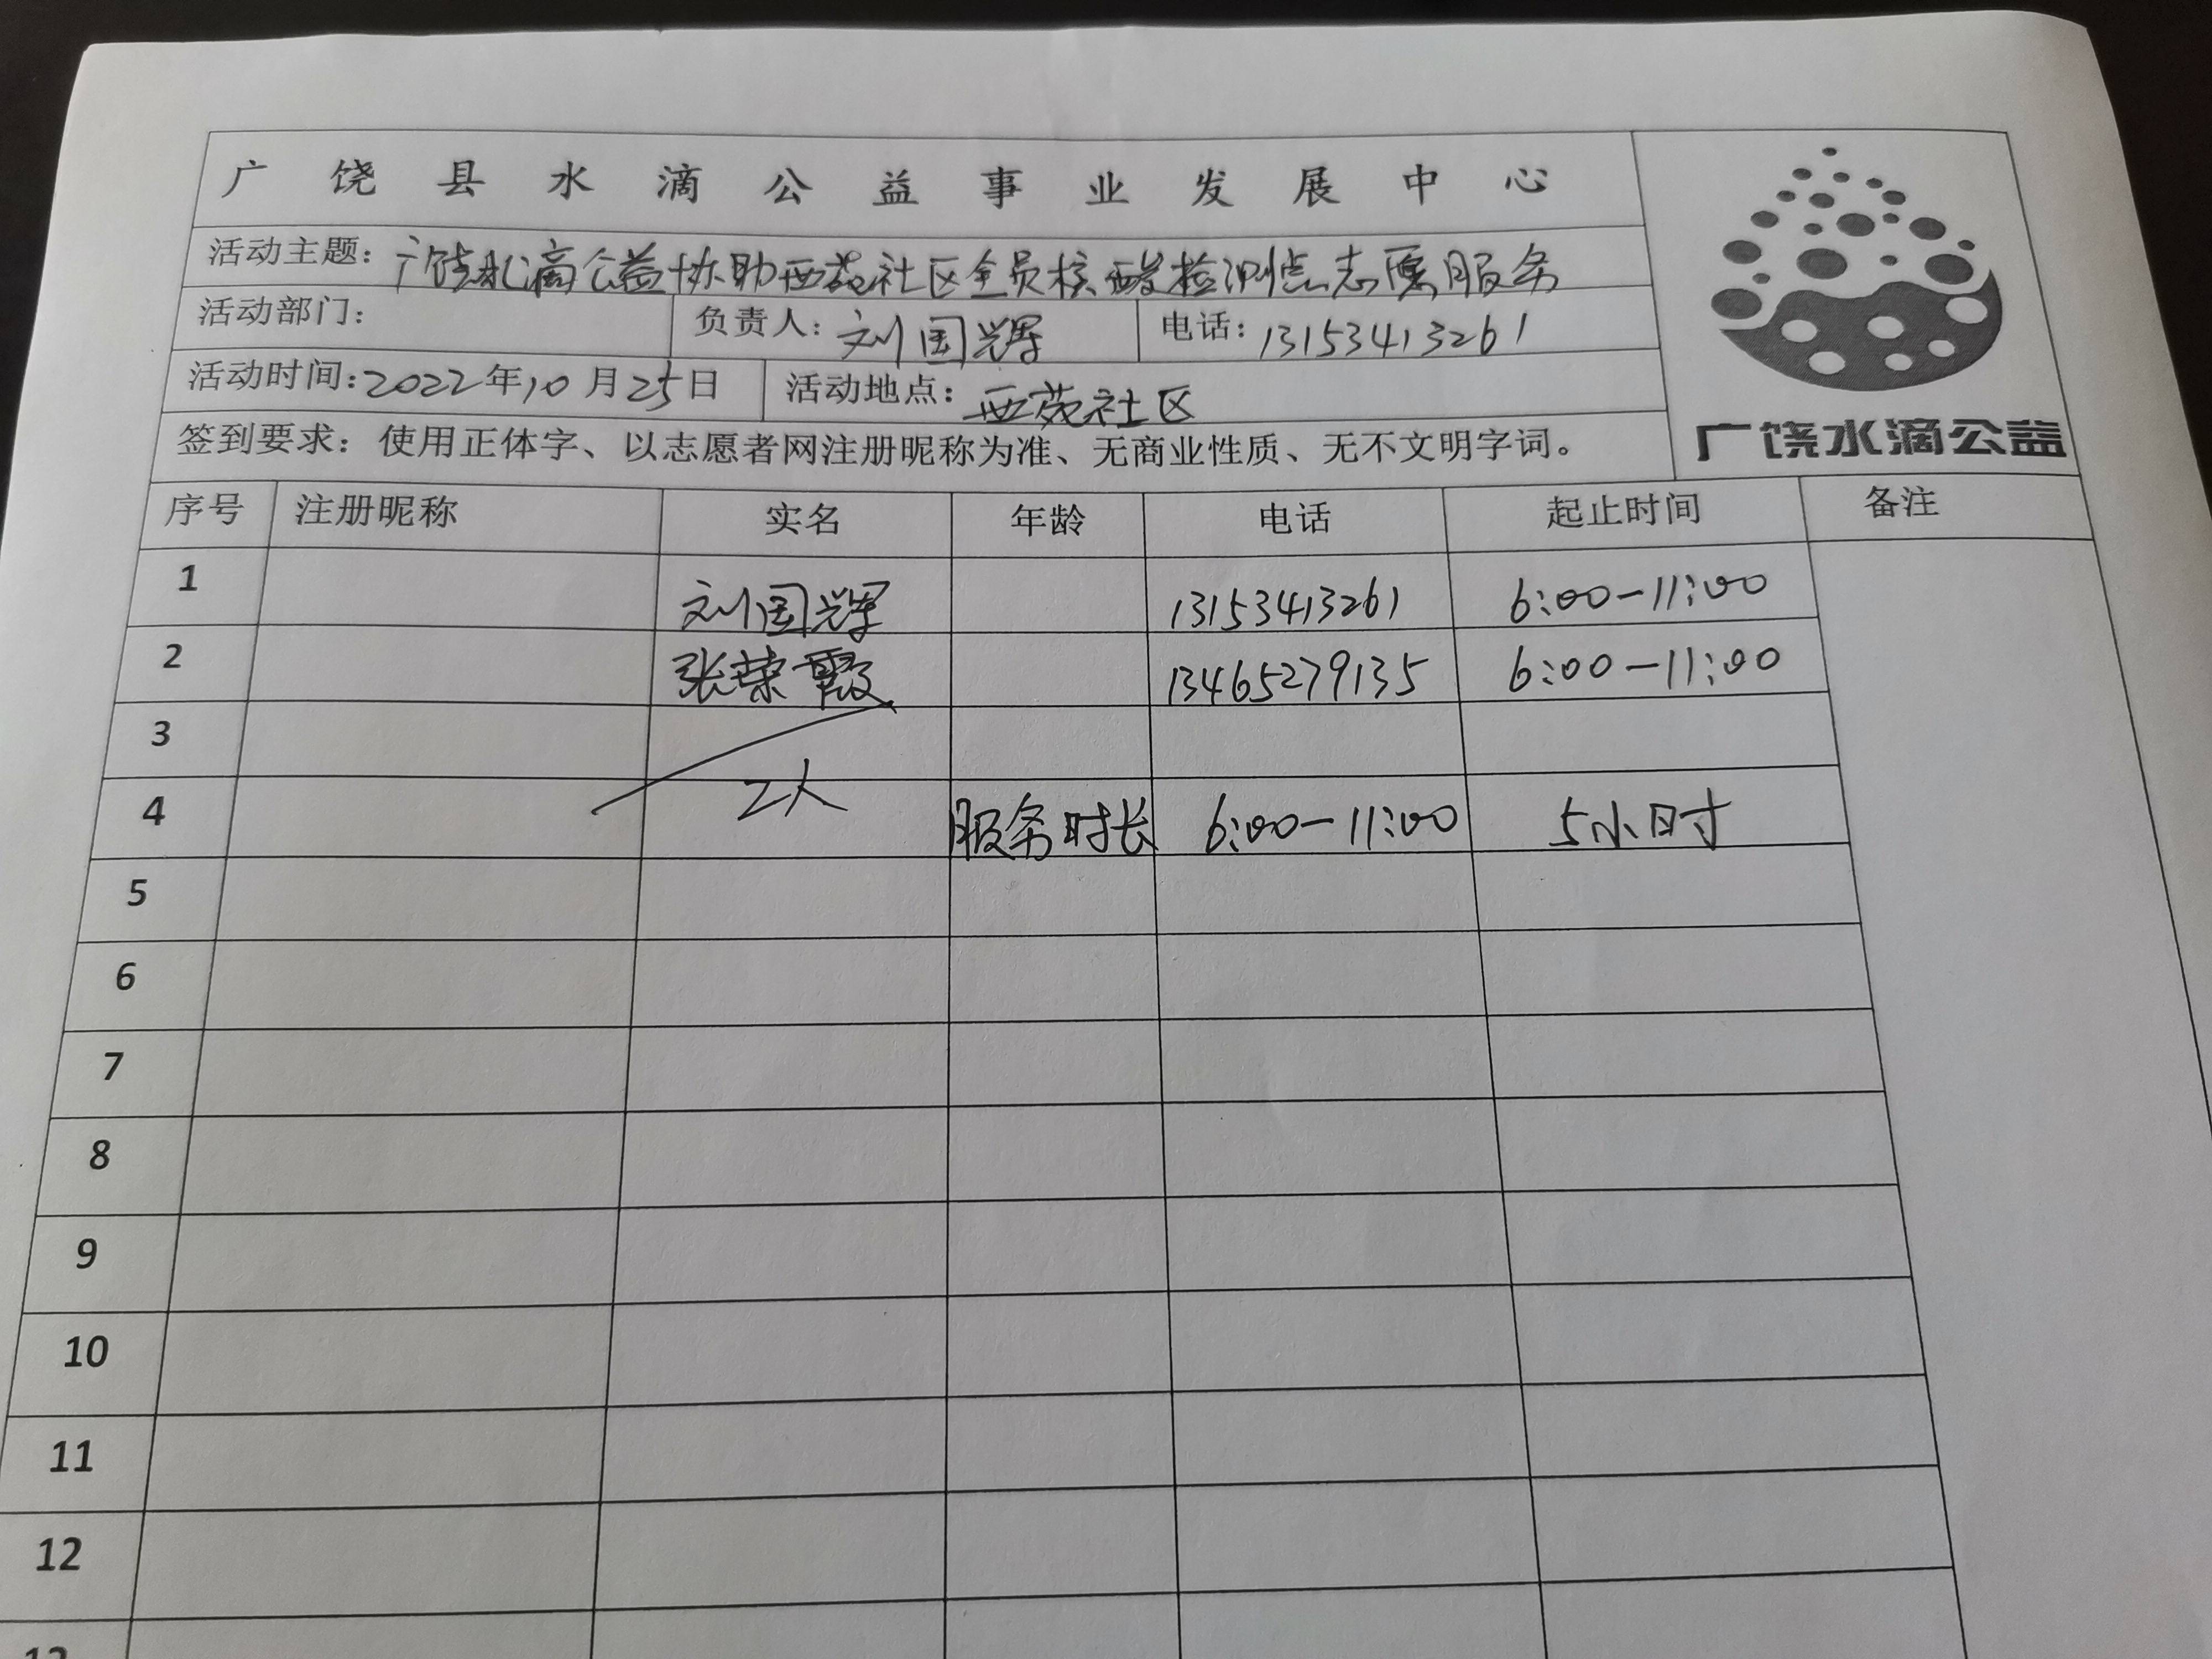 广饶县水滴公益事业发展中心
活动主题：广饶水滴公益协助西苑社区全员核酸检测点志愿服务
活动部门： 负责人：刘国辉 电话：13153413261
活动时间：2022年10月25日 活动地点：西苑社区
签到要求：使用正体字、以志愿者网注册昵称为准、无商业性质、无不文明字词。
广饶水滴公益
序号 注册昵称 实名 年龄 电话 起止时间 备注
1 刘国辉 13153413261 6:00-11:00
2 张荣霞 13465279135 6:00-11:00
3
4 2人 服务时长 6:00-11:00 5小时
5
6
7
8
9
10
11
12